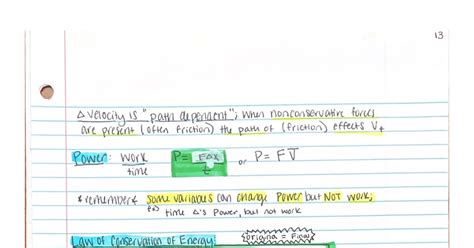 13
△ velocity is "path dependent"; when nonconservative forces
are present (often friction) the path of (friction) effects V_f
Power: Work/time P= F△x/t or P= Fv̄
*remember* some variables can change Power but NOT work;
ex) time △'s Power, but not work
Law of Conservation of Energy: Original = Final